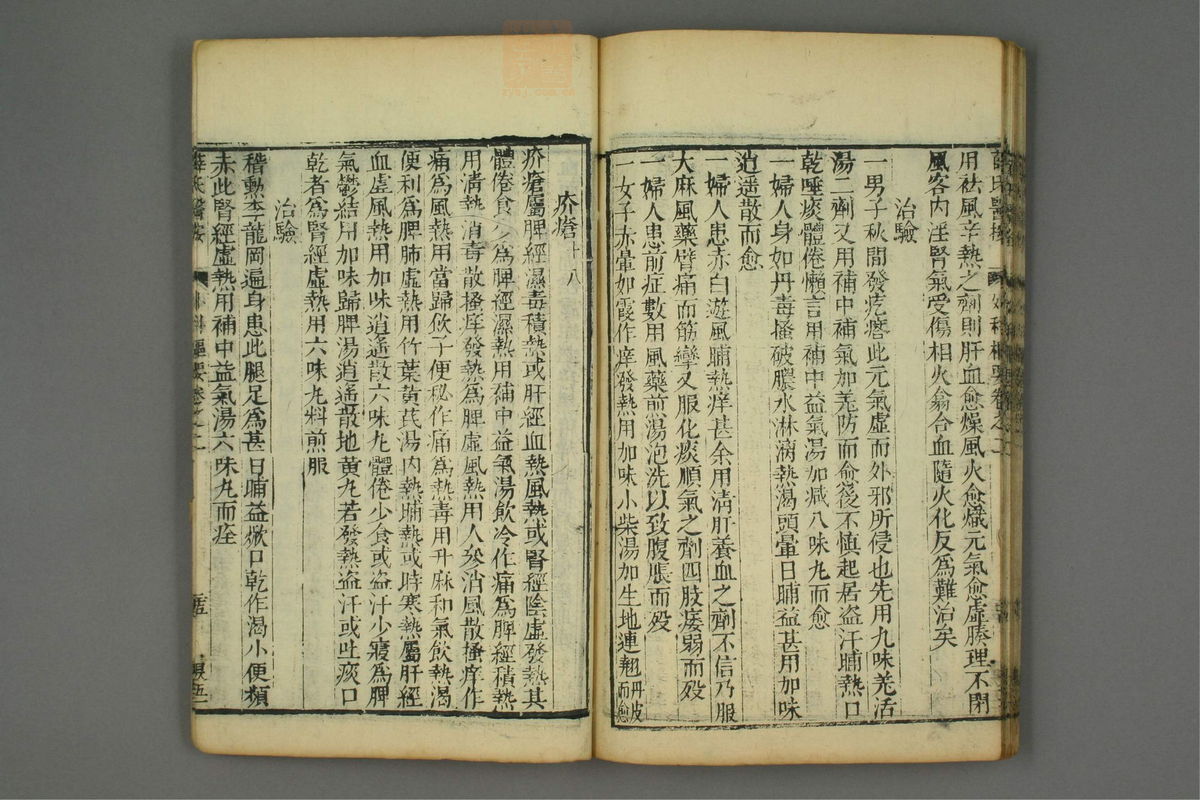 用祛風辛熱之劑則肝血愈燥風火愈熾元氣愈虛腠理不閉
風客內淫腎氣受傷相火翕合血隨火化反爲難治矣
治驗
一男子秋間發疙瘩此元氣虛而外邪所侵也先用九味羌活
湯二劑又用補中補氣加羌防而愈後不慎起居盜汗晡熱口
乾唾痰體倦懶言用補中益氣湯加減八味丸而愈
一婦人身如丹毒搔破膿水淋漓熱渴頭暈日晡益甚用加味
逍遥散而愈
一婦人患赤白遊風晡熱痒甚余用清肝養血之劑不信乃服
大麻風藥臂痛而筋攣又服化痰順氣之劑四肢痿弱而歿
一婦人患前症數用風藥煎湯泡洗以致腹脹而歿
一女子赤暈如霞作痒發熱用加味小柴湯加生地連翹丹皮而愈
疥瘡十八
疥瘡屬脾經濕毒積熱或肝經血熱風熱或腎經陰虛發熱其
體倦食少爲脾經濕熱用補中益氣湯飲冷作痛爲脾經積熱
用清熱消毒散搔痒發熱爲脾虛風熱用人參消風散搔痒作
痛爲風熱用當歸飲子便秘作痛爲熱毒用升麻和氣飲熱渴
便利爲脾肺虛熱用竹葉黃芪湯內熱晡熱或時寒熱屬肝經
血虛風熱用加味逍遥散六味丸體倦少食或盜汗少寢爲脾
氣鬱結用加味歸脾湯逍遥散地黃丸若發熱盜汗或吐痰口
乾者爲腎經虛熱用六味丸料煎服
治驗
稽勲李龍岡遍身患此腿足爲甚日晡益焮口乾作渴小便頻
赤此腎經虛熱用補中益氣湯六味丸而痊